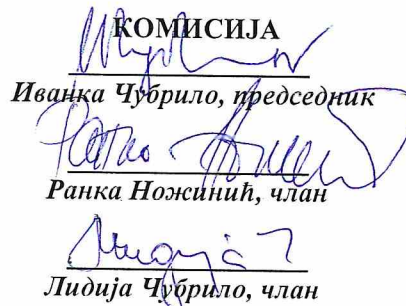 КОМИСИЈА
Иванка Чубрило, председник
Ранка Ножинић, члан
Лидија Чубрило, члан